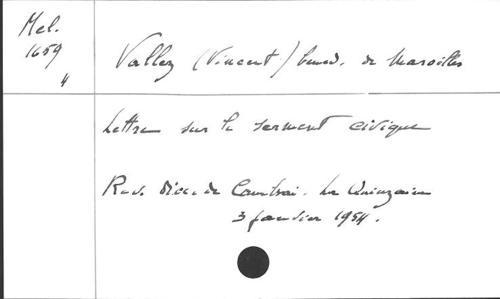 Mel.
1659
4
Vallez (Vincent) béned. de Maroilles
Lettre sur le serment civique
Rev. dioc. de Cambrai. La Quinzaine
3 janvier 1954.